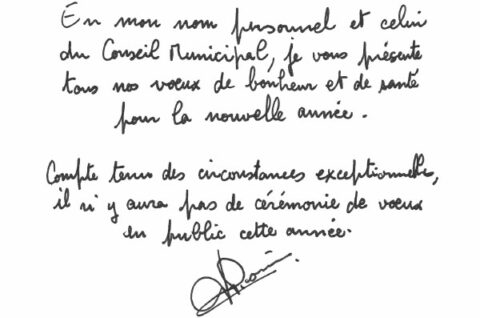 En mon nom personnel et celui
du Conseil Municipal, je vous présente
tous nos vœux de bonheur et de santé
pour la nouvelle année.
Compte tenu des circonstances exceptionnelles,
il n'y aura pas de cérémonie de vœux
en public cette année.